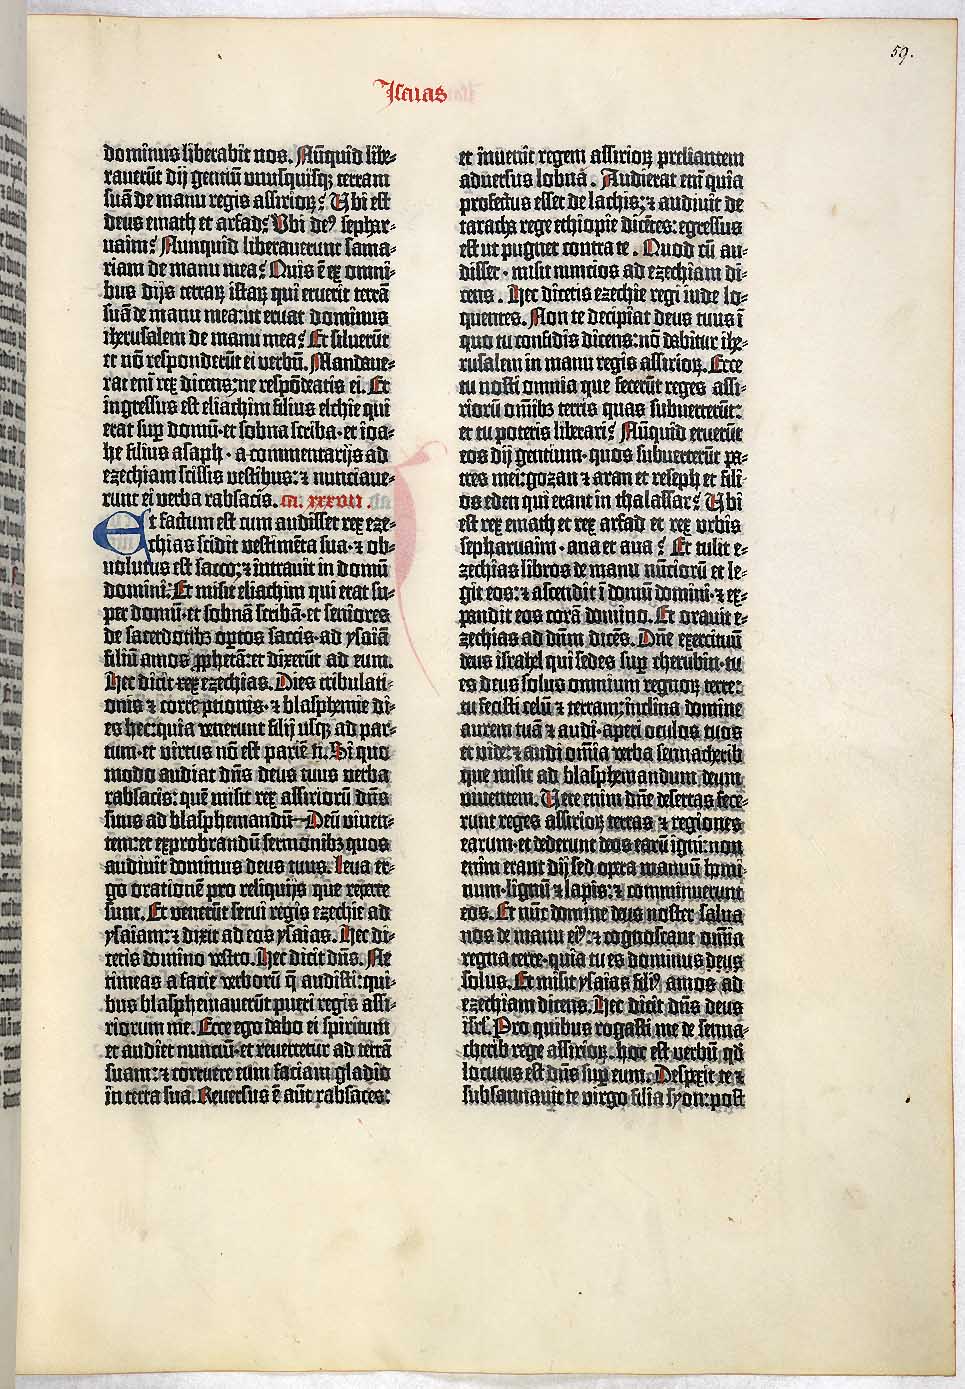 59.
Isaias
dominus liberabit nos. Nūquid libe-
rauerūt dij gentiū unusquisqȝ terram
suā de manu regis assirioꝝ? Ubi est
deus emath et arfad? Ubi deꝰ sephar-
uaim? Nunquid liberauerunt sama-
riam de manu mea? Quis ē ex omni-
bus dijs terraꝝ istaꝝ qui eruerit terrā
suā de manu mea: ut eruat dominus
iherusalem de manu mea? Et siluerūt
et nō responderūt ei verbū. Mandaue-
rat eni rex dicens: ne respōdeatis ei. Et
ingressus est eliachim filius elchie qui
erat sup domū · et sobna scriba · et ioa-
he filius asaph · a commentarijs ad
ezechiam scissis vestibus: ⁊ nunciaue-
runt ei verba rabsacis. ca. xxxvii.
Et factum est cum audisset rex eze-
chias scidit vestimēta sua · ⁊ ob-
uolutus est sacco: ⁊ intrauit in domū
domini. Et misit eliachim qui erat su-
per domū · et sobnā scribā · et seniores
de sacerdotibȝ optos saccis · ad ysaiā
filiū amos ꝓphetā: et dixerūt ad eum.
Hec dicit rex ezechias. Dies tribulati-
onis ⁊ correptionis · ⁊ blasphemie di-
es hec: quia venerunt filij usqȝ ad par-
tum · et virtus nō est pariēdi. Si quo
modo audiat dn̄s deus tuus verba
rabsacis: quē misit rex assirioꝝ dn̄s
suus ad blasphemandū Deū viuen-
tem: et exprobrandū sermonibȝ quos
audiuit dominus deus tuus. Leua er-
go orationē pro reliquijs que reperte
sunt. Et venerūt serui regis ezechie ad
ysaiam: ⁊ dixit ad eos ysaias. Hec di-
cetis domino vestro. Hec dicit dn̄s. Ne
timeas a facie verborū q̄ audisti: qui-
bus blasphemauerūt pueri regis assi-
riorum me. Ecce ego dabo ei spiritum
et audiet nunciū · et reuertetur ad terrā
suam: ⁊ corruere eum faciam gladio
in terra sua. Reuersus ē aūt rabsaces:
et inuenit regem assirioꝝ preliantem
aduersus lobnā. Audierat eni quia
profectus esset de lachis: ⁊ audiuit de
taracha rege ethiopie dicētes: egressus
est ut pugnet contra te. Quod cū au-
disset · misit nuncios ad ezechiam di-
cens. Hec dicetis ezechie regi iude lo-
quentes. Non te decipiat deus tuus ī
quo tu confidis dicens: nō dabitur ihe-
rusalem in manu regis assirioꝝ. Ecce
tu nosti omnia que fecerūt reges assi-
riorū omībȝ terris quas subuerterūt:
et tu poteris liberari? Nūquid eruerūt
eos dij gentium · quos subuerterūt pa-
tres mei: gozan ⁊ aran et reseph et fili-
os eden qui erant in thalassar? Ubi
est rex emath et rex arfad et rex urbis
sepharuaim · ana et aua? Et tulit e-
zechias libros de manu nūciorū et le-
git eos: ⁊ ascendit ī domū domini · ⁊ ex-
pandit eos corā domino. Et orauit e-
zechias ad dn̄m dicēs. Dn̄e exercituū
deus israhel qui sedes sup cherubin · tu
es deus solus omnium regnoꝝ terre:
tu fecisti celū ⁊ terram: inclina domine
aurem tuā ⁊ audi · aperi oculos tuos
et vide: ⁊ audi omīa verba sennacherib
que misit ad blasphemandum deum
viuentem. Vere enim dn̄e desertas fece-
runt reges assirioꝝ terras ⁊ regiones
earum · et dederunt deos earū igni: non
enim erant dij sed opera manuū homi-
num · lignū ⁊ lapis: ⁊ comminuerunt
eos. Et nūc domine deus noster salua
nos de manu eiꝰ: ⁊ cognoscant omīa
regna terre · quia tu es dominus deus
solus. Et misit ysaias filiꝰ amos ad
ezechiam dicens. Hec dicit dn̄s deus
isrl. Pro quibus rogasti me de senna-
cherib rege assirioꝝ. hoc est verbū qd
locutus est dn̄s sup eum. Despexit te ⁊
subsannauit te virgo filia syon: post